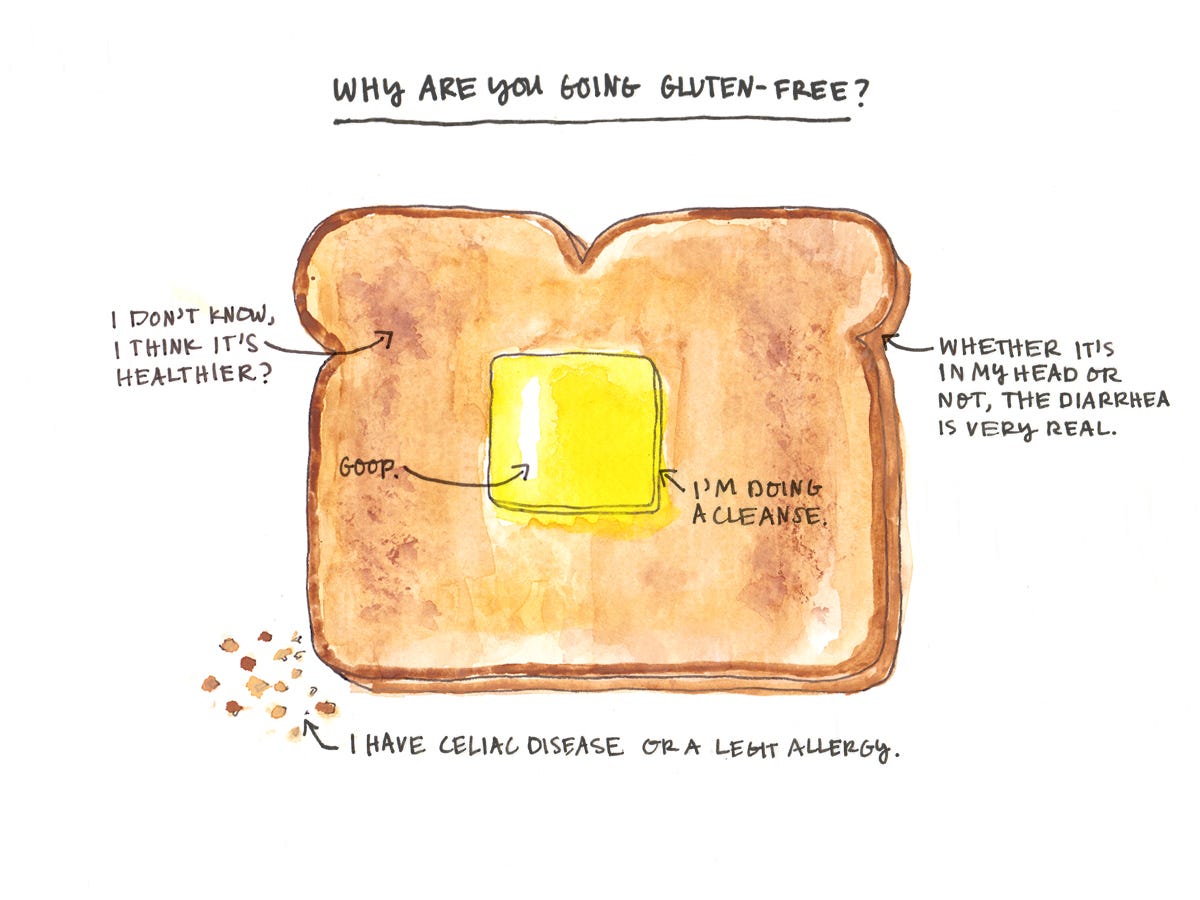 WHY ARE YOU GOING GLUTEN-FREE?
I DON'T KNOW,
I THINK IT'S
HEALTHIER?
WHETHER IT'S
IN MY HEAD OR
NOT, THE DIARRHEA
IS VERY REAL.
GOOP.
I'M DOING
A CLEANSE.
I HAVE CELIAC DISEASE OR A LEGIT ALLERGY.